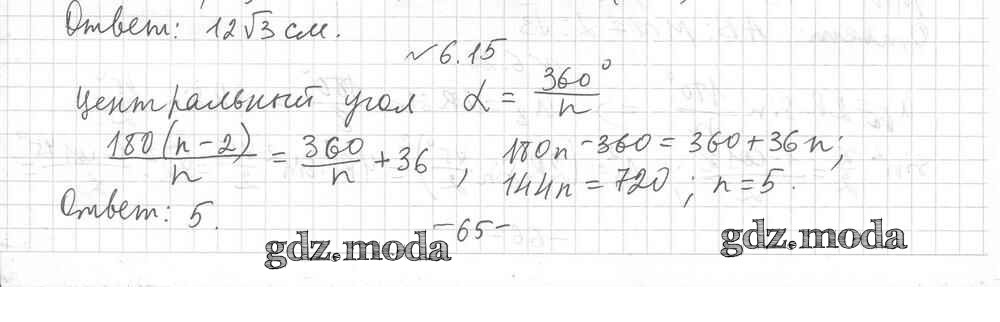 Ответ: 12√3 см.
№ 6.15
Центральный угол α = 360°/n
180(n-2)/n = 360/n + 36, 180n - 360 = 360 + 36n;
144n = 720; n = 5.
Ответ: 5.
-65-
gdz.moda
gdz.moda